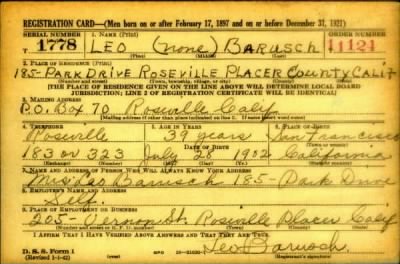 REGISTRATION CARD—(Men born on or after February 17, 1897 and on or before December 31, 1921)
SERIAL NUMBER 1. NAME (Print) ORDER NUMBER
1778 LEO (none) BARUSCH 11124
(First) (Middle) (Last)
2. PLACE OF RESIDENCE (Print)
185-PARK DRIVE ROSEVILLE PLACER COUNTY CALIF
(Number and street) (Town, township, village, or city) (County) (State)
[THE PLACE OF RESIDENCE GIVEN ON THE LINE ABOVE WILL DETERMINE LOCAL BOARD
JURISDICTION; LINE 2 OF REGISTRATION CERTIFICATE WILL BE IDENTICAL]
3. MAILING ADDRESS
P.O. Box 70 Roseville Calif.
[Mailing address if other than place indicated on line 2. If same insert word same]
4. TELEPHONE 5. AGE IN YEARS 6. PLACE OF BIRTH
Roseville 39 years San Francisco
DATE OF BIRTH
183 or 323 July 28 1902 California
(Exchange) (Number) (Mo.) (Day) (Yr.) (State or country)
7. NAME AND ADDRESS OF PERSON WHO WILL ALWAYS KNOW YOUR ADDRESS
Barusch 185-Park Drive
8. EMPLOYER'S NAME AND ADDRESS
Self.
9. PLACE OF EMPLOYMENT OR BUSINESS
205- Vernon St. Roseville Placer Calif
(Number and street or R. F. D. number) (Town) (County) (State)
I AFFIRM THAT I HAVE VERIFIED ABOVE ANSWERS AND THAT THEY ARE TRUE.
D. S. S. Form 1 Leo Barusch
(Revised 1-1-42) (Registrant's signature)